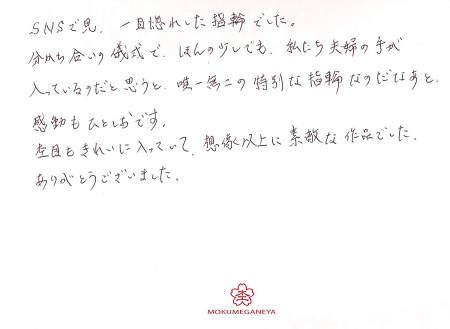 SNSで見、一目惚れした指輪でした。
分かち合いの儀式で、ほんの少しでも、私たち夫婦の手が
入っているのだと思うと、唯一無二の特別な指輪なのだなあと、
感動もひとしおです。
杢目もきれいに入っていて、想像以上に素敵な作品でした。
ありがとうございました。
MOKUMEGANEYA